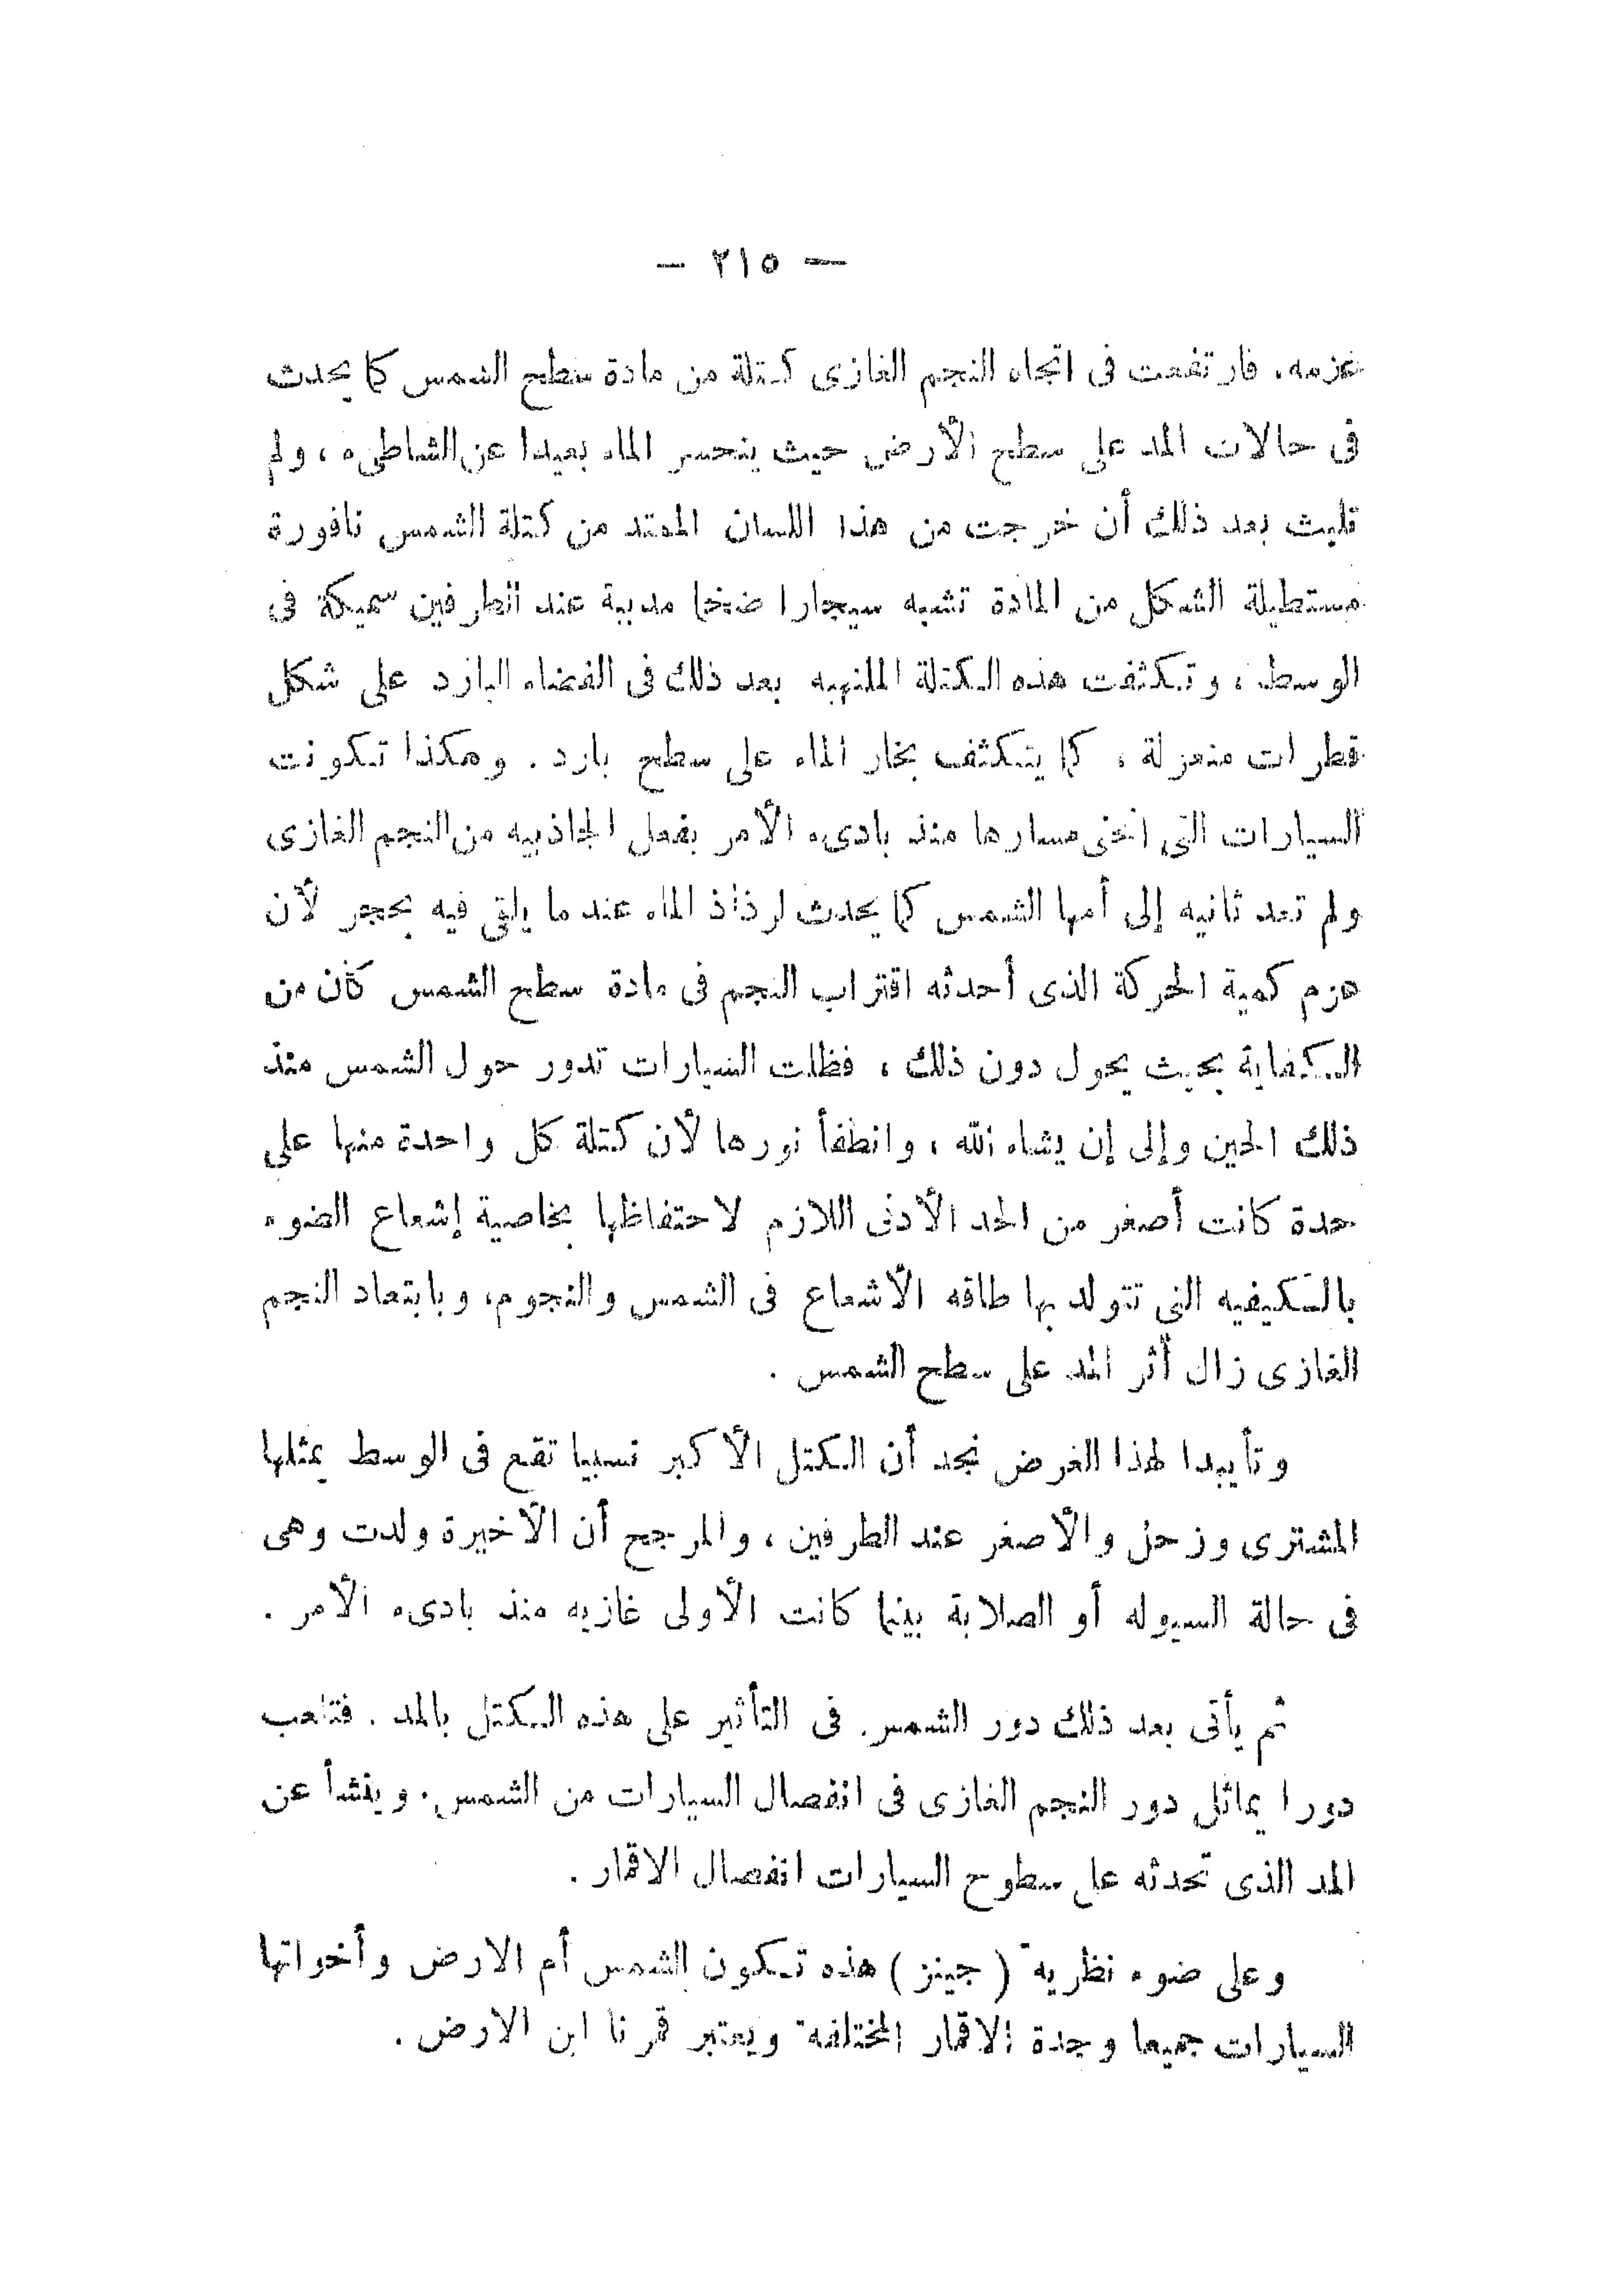 — ٢١٥ —
عزمه. فارتفعت فى اتجاه النجم الغازى كتلة من مادة سطح الشمس كما يحدث
فى حالات المد على سطح الأرض حيث ينحسر الماء بعيدا عن الشاطىء ، ولم
تلبث بعد ذلك أن خرجت من هذا اللسان الممتد من كتلة الشمس نافورة
مستطيلة الشكل من المادة تشبه سيجارا ضخما مدببة عند الطرفين سميكة فى
الوسط ، وتكثفت هذه الكتلة الملتهبه بعد ذلك فى الفضاء البارد على شكل
قطرات منعزلة ، كما يتكثف بخار الماء على سطح بارد . وهكذا تكونت
السيارات التى انحنى مسارها منذ بادىء الأمر بفعل الجاذبيه من النجم الغازى
ولم تعد ثانيه إلى أمها الشمس كما يحدث لرذاذ الماء عند ما يلقى فيه بحجر لأن
هزم كمية الحركة الذى أحدثه اقتراب النجم فى مادة سطح الشمس كان من
الكفاية بحيث يحول دون ذلك ، فظلت السيارات تدور حول الشمس منذ
ذلك الحين وإلى إن يشاء الله ، وانطفأ نورها لأن كتلة كل واحدة منها على
حدة كانت أصغر من الحد الأدنى اللازم لاحتفاظها بخاصية إشعاع الضوء
بالكيفيه التى تتولد بها طاقه الأشعاع فى الشمس والنجوم، وبابتعاد النجم
الغازى زال أثر المد على سطح الشمس .
وتأييدا لهذا الغرض نجد أن الكتل الأكبر نسبيا تقع فى الوسط يمثلها
المشترى وزحل والأصغر عند الطرفين ، والمرجح أن الأخيرة ولدت وهى
فى حالة السيوله أو الصلابة بينما كانت الأولى غازيه منذ بادىء الأمر .
ثم يأتى بعد ذلك دور الشمس. فى التأثير على هذه الكتل بالمد . فتلعب
دورا يماثل دور النجم الغازى فى انفصال السيارات من الشمس. وينشأ عن
المد الذى تحدثه على سطوح السيارات انفصال الاقمار .
وعلى ضوء نظرية ( جينز ) هذه تكون الشمس أم الارض وأخواتها
السيارات جميعا وجدة الاقمار المختلفة ويعتبر قمرنا ابن الارض .